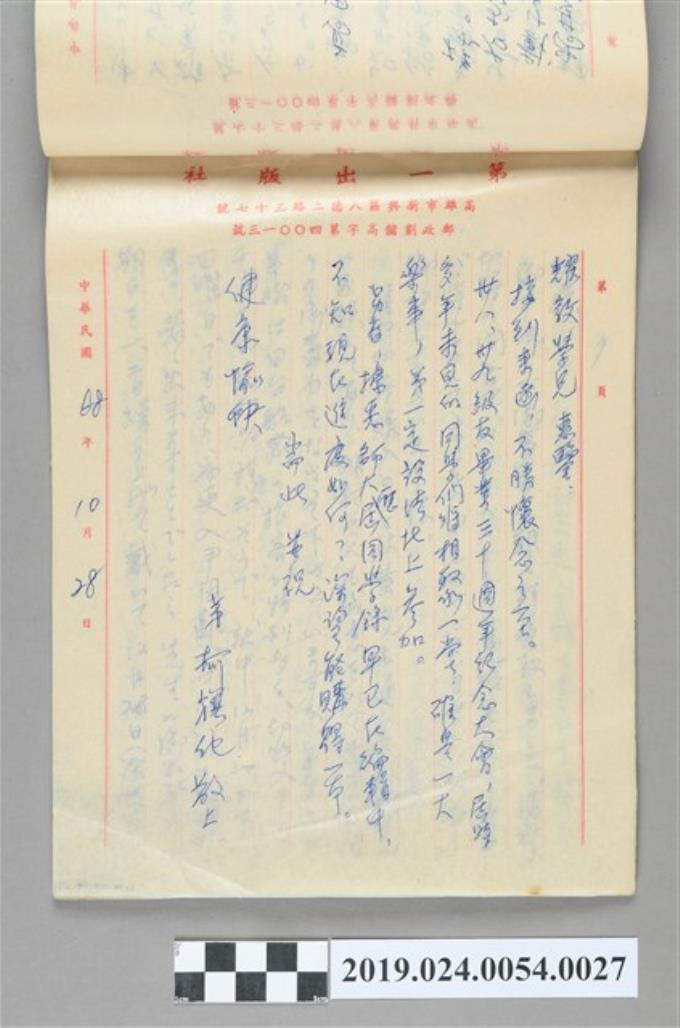 第一出版社
高雄市新興區八德二路三十七號
郵政劃儲高字第四〇〇一三號
第 頁
耀敏學兄 惠鑒:
接到來函,不勝懷念之至。
卅八、卅九級友畢業三十週年紀念大會,屆時
多年未見的同學們將相敘一堂,確是一大
樂事,弟一定設法北上參加。
另者,據悉師大歷屆同學錄早已在編輯中,
不知現在進度如何?深望能購得一本。
耑此 並祝
健康愉快
弟 柯旗化 敬上
中華民國 68 年 10 月 28 日
2019.024.0054.0027